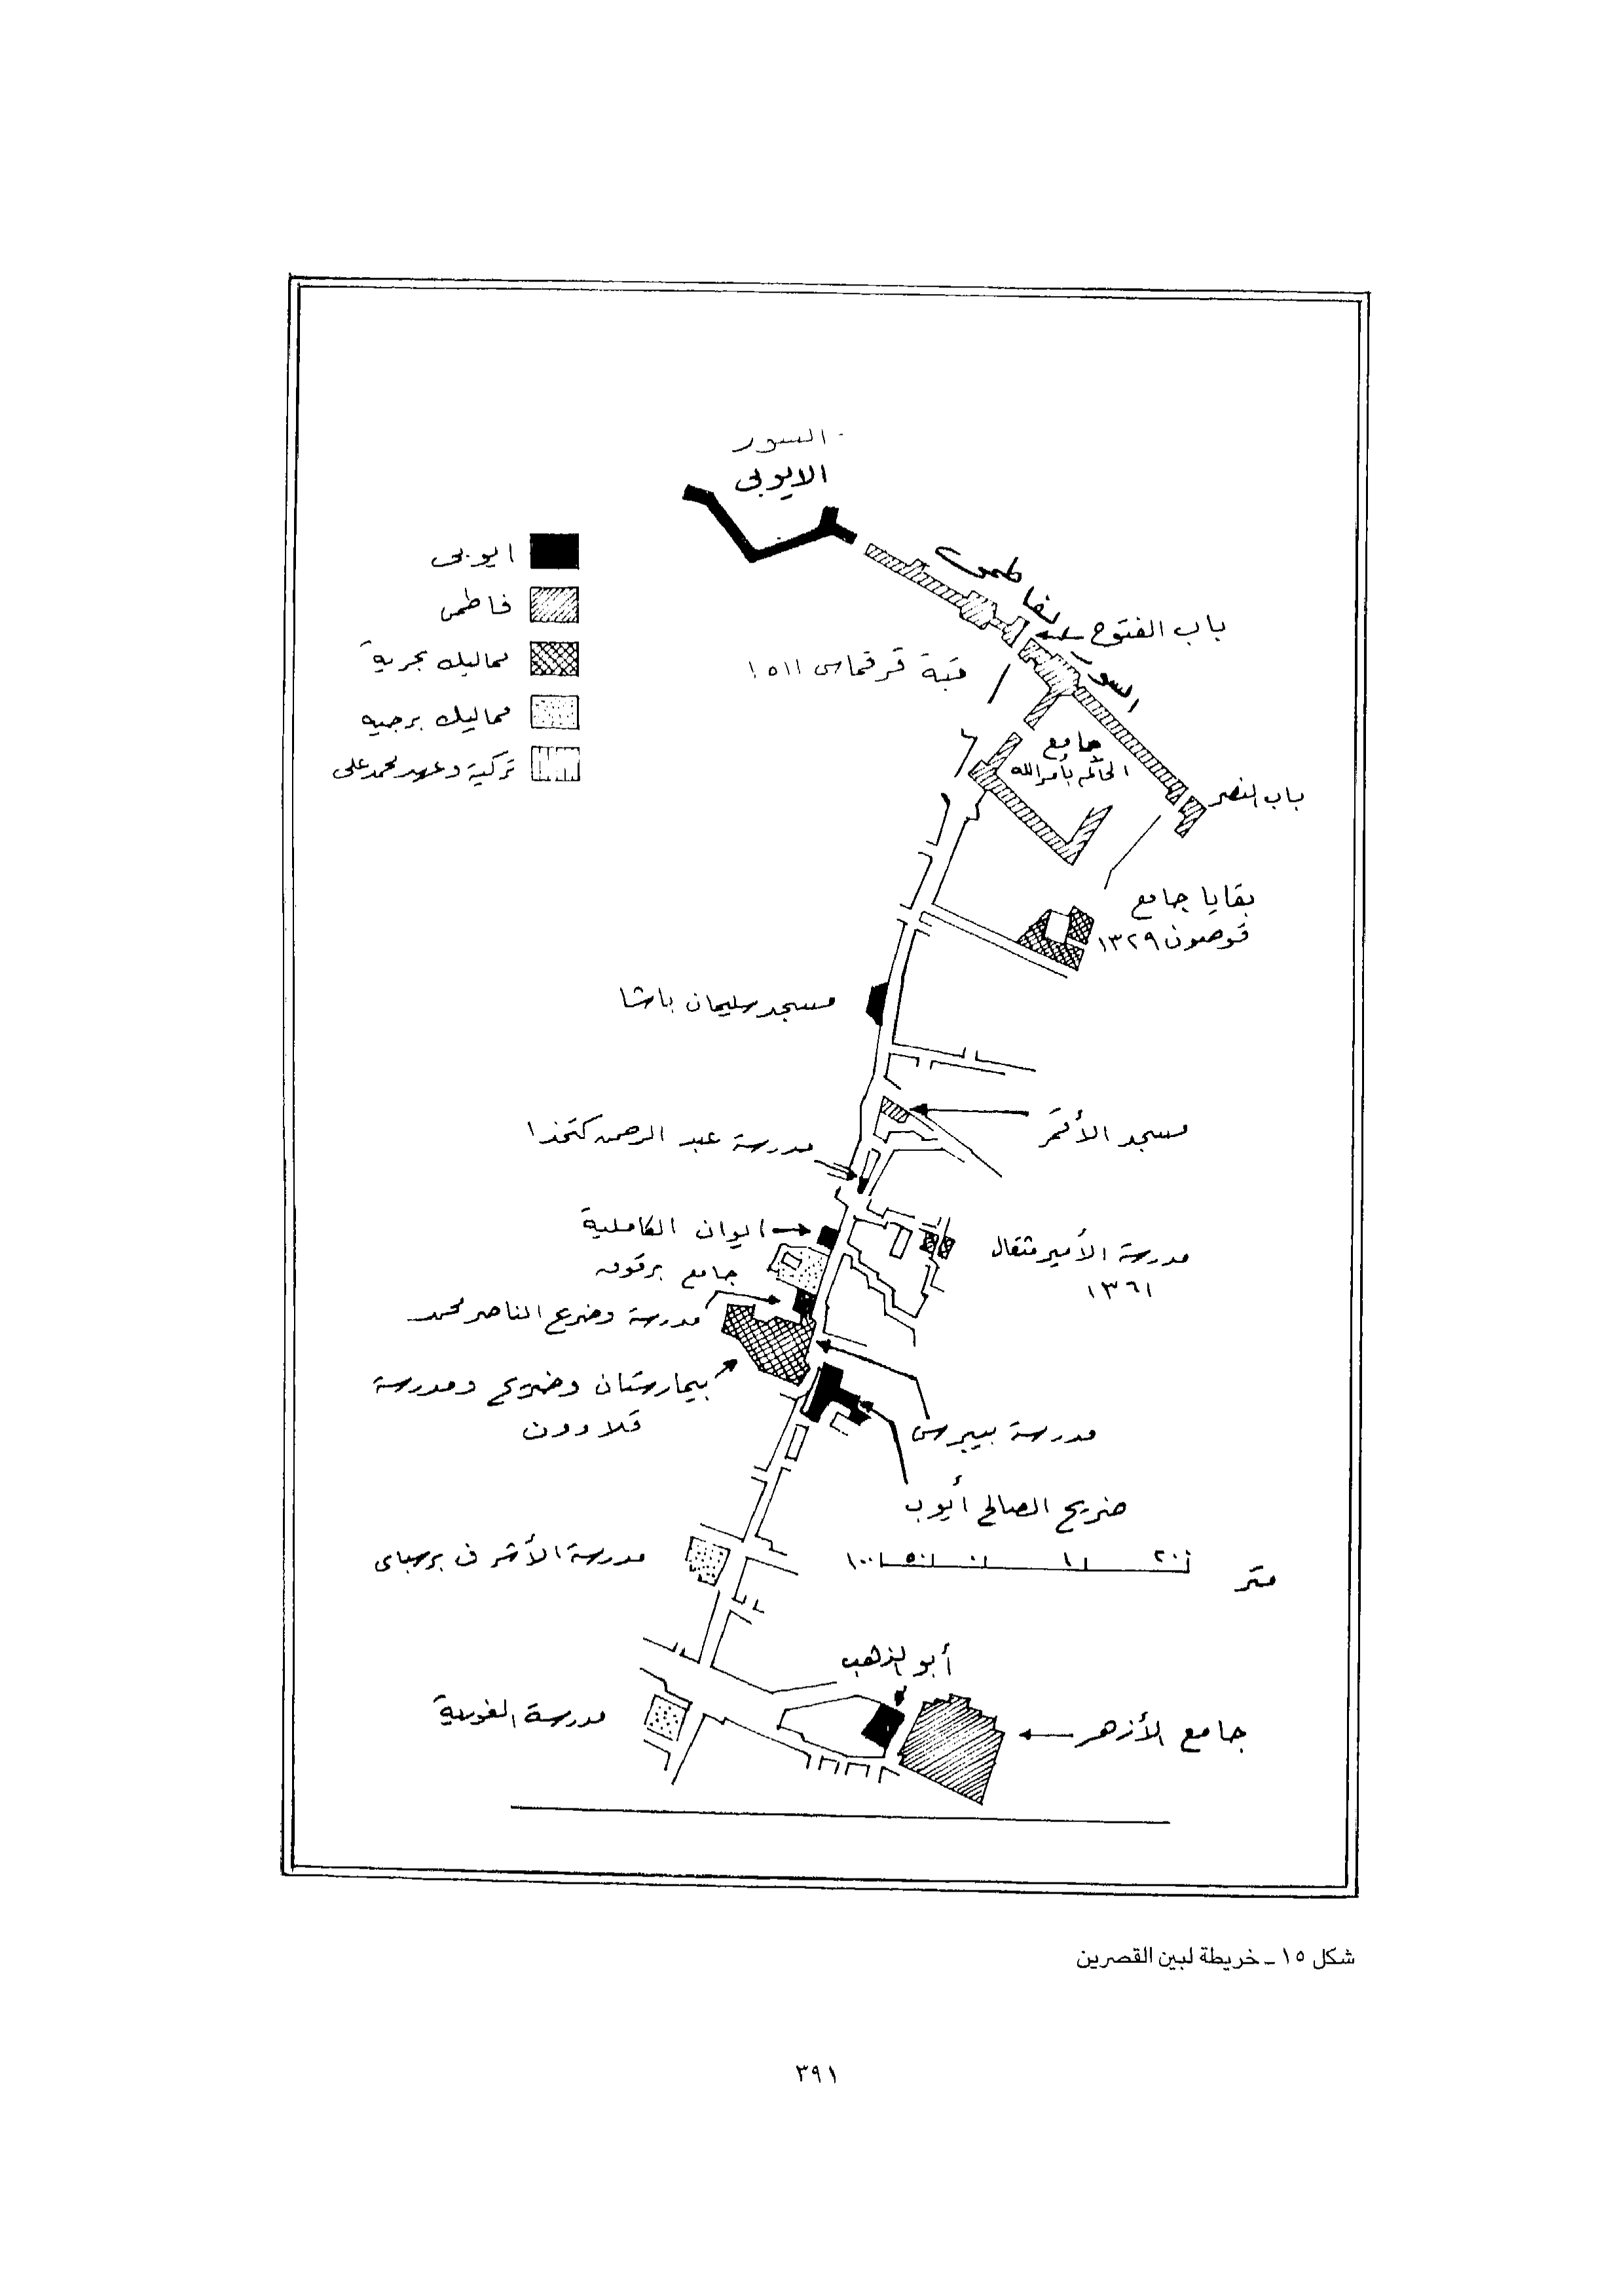 السور
الايوبى
ايوبى
فاطمى
مماليك بحرية
مماليك برجيه
تركية وعهد محمد على
السور الفاطمى
باب الفتوح
قبة قرقماس ١٥١١
جامع
الحاكم بأمر الله
باب النصر
بقايا جامع
قوصون ١٣٢٩
مسجد سليمان باشا
مسجد الأقمر
مدرسة عبد الرحمن كتخدا
ايوان الكاملية
مدرسة الأمير مثقال
١٣٦١
جامع برقوق
مدرسة وضريح الناصر محمد
بيمارستان وضريح ومدرسة
قلاوون
مدرسة بيبرس
ضريح الصالح أيوب
مدرسة الأشرف برسباى
١٠٠ ٥٠ ٠ ١ ٢٠
متر
أبو الذهب
مدرسة الغورية
جامع الأزهر
شكل ١٥ ـ خريطة لبين القصرين
٣٩١